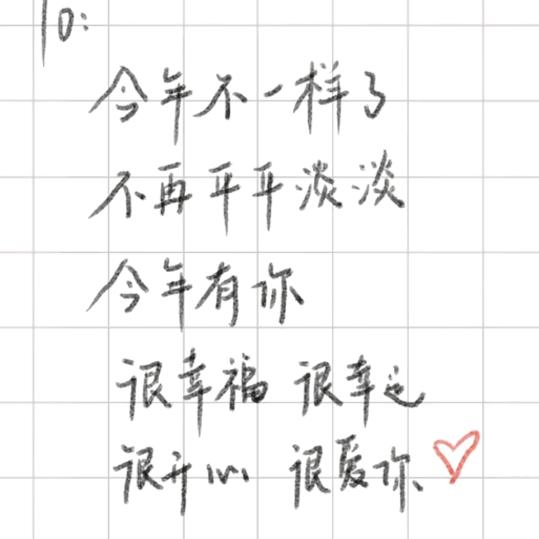 10:
今年不一样了
不再平平淡淡
今年有你
很幸福 很幸运
很开心 很爱你